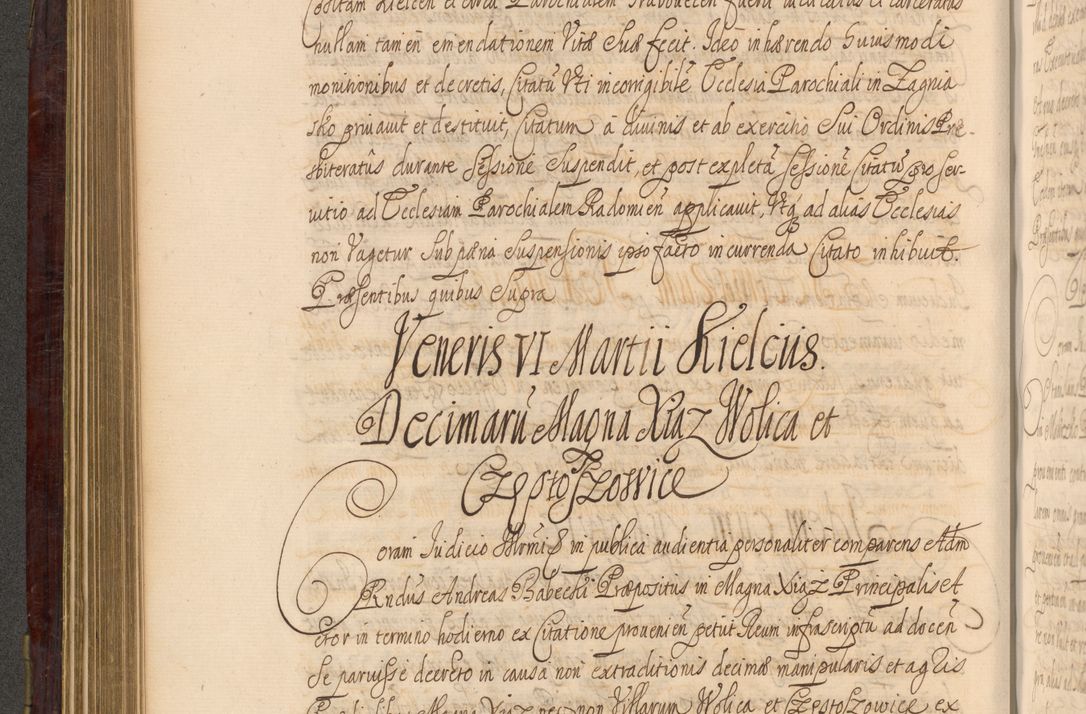 ositam Kielcen et circa Parochialem Grabovecen fuerit
nullam tamen emendationem Vitæ Suæ fecit. Ideo inhærendo huiusmodi
monitionibus et decretis, Citatū Vti incorrigibilē Ecclesia Parochiali in Zagnia
sko privavit et destituit, Citatum à divinis et ab exercitio Sui Ordinis Præ-
sbiteratûs durante Sessione Suspendit, et post expletā Sessionē Citatū pro Ser-
vitio ad Ecclesiam Parochialem Radomien̄ applicavit, Vtq; ad alias Ecclesias
non Vagetur Sub pæna Suspensionis ipso facto incurrenda Citato inhibuit.
Præsentibus quibus Supra
Veneris VI Martii Kielciis.
Decimarū Magna Xiąz Wolica et
Częstoszowice
Coram Iudicio in publica audientia personaliter comparens Adm
Rndus Andreas Babecki Præpositus in Magna Xiąz Principalis et
Actor in termino hodierno ex Citatione provenien̄ petiit Reum infrascriptū ad docen̄
Se paruisse decreto in causa non extraditionis decimæ manipularis et agris
Magna Xiąz nec non Villarum Wolica et Częstoszowice ex